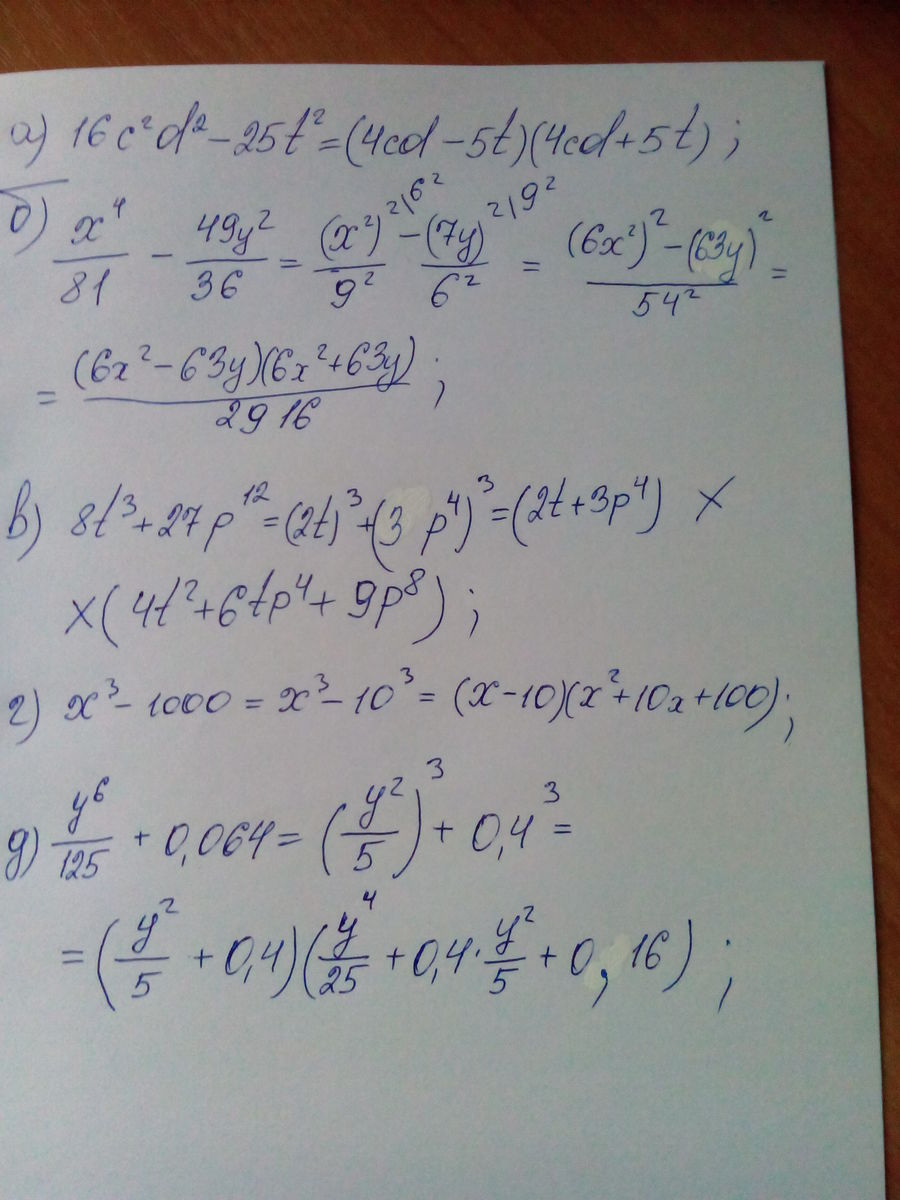 а) 16c²d² - 25t² = (4cd - 5t)(4cd + 5t) ;
б) x⁴/81 - 49y²/36 = (x²)²\6²/9² - (7y)²\9²/6² = ((6x²)² - (63y)²)/54² =
= (6x² - 63y)(6x² + 63y)/2916 ;
в) 8t³ + 27p¹² = (2t)³ + (3 p⁴)³ = (2t + 3p⁴) ×
× (4t² + 6tp⁴ + 9p⁸) ;
г) x³ - 1000 = x³ - 10³ = (x - 10)(x² + 10x + 100) ;
д) y⁶/125 + 0,064 = (y²/5)³ + 0,4³ =
= (y²/5 + 0,4)(y⁴/25 + 0,4 · y²/5 + 0,16) ;